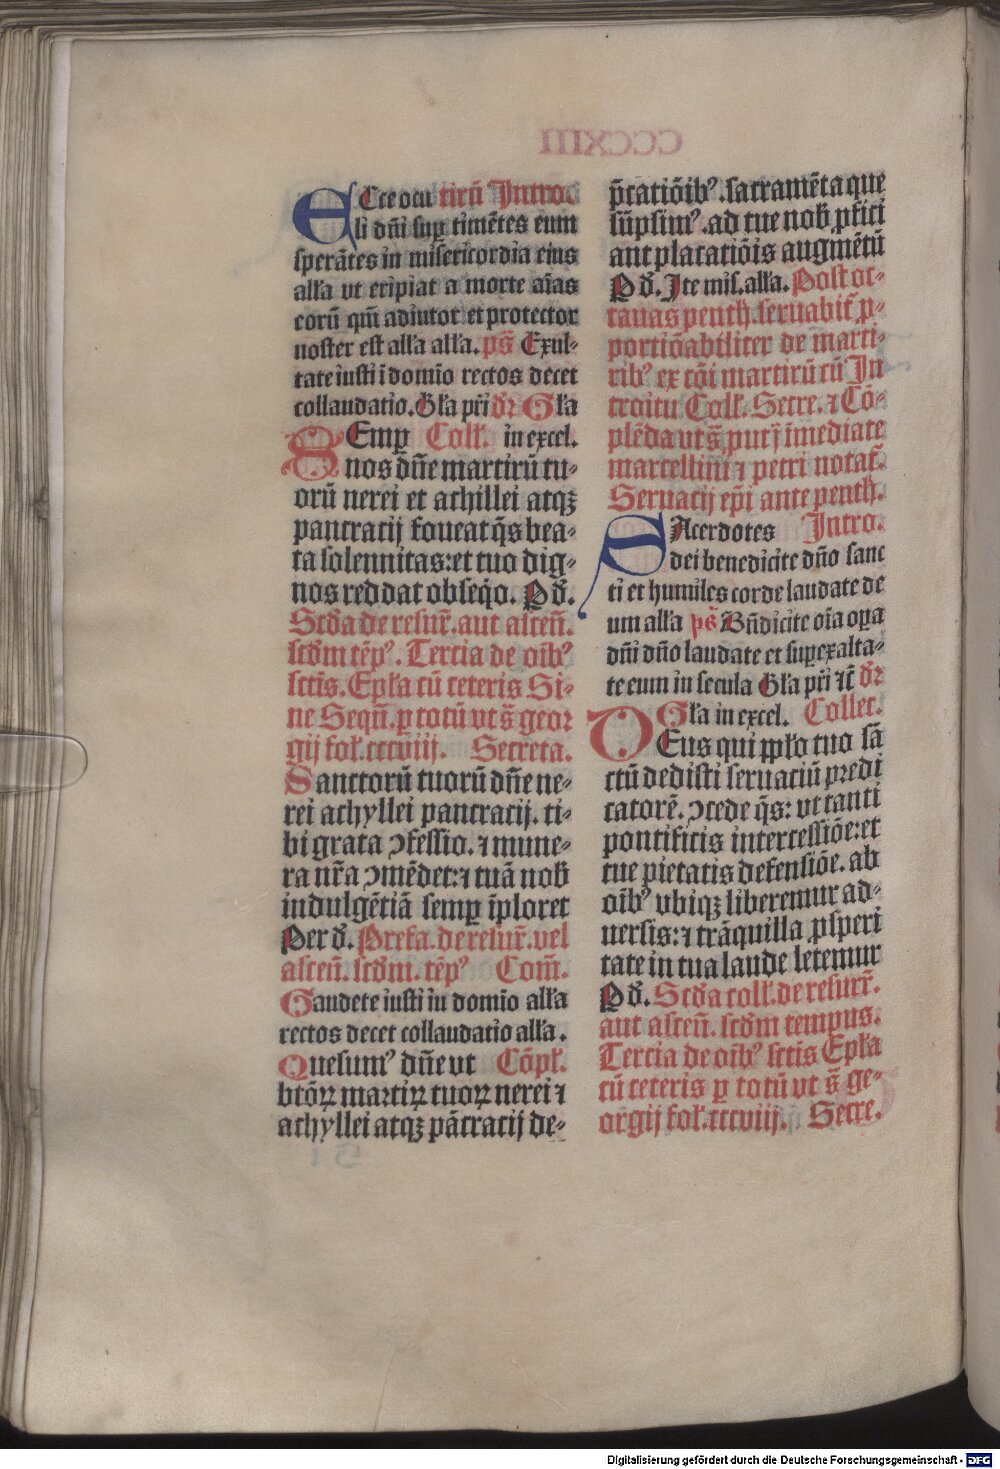 Ecce ocu tirū Intro.
li dn̄i suꝑ timētes eum
sperātes in misericordia eius
alľa vt eripiat a morte aīas
eorū qm̄ adiutor et protector
noster est alľa alľa. ps̄ Exul-
tate iusti ī domīo rectos decet
collaudatio. Gľa pr̄i dr̄ Gľa
SEmꝑ Coll'. in excel.
nos dn̄e martirū tu-
orū nerei et achillei atqꝫ
pancratij foueat q̄s bea-
ta solennitas: et tuo dig-
nos reddat obseq̇o. P d'.
Scd'a de resur̄. aut ascen̄.
scd'm tēpꝰ. Tercia de oīb'
sctīs. Epľa cū ceteris Si-
ne Sequn̄. ꝑ totū vt s̄ geor
gij fol'. cccviij. Secreta.
Sanctorū tuorū dn̄e ne-
rei achyllei pancratij. ti-
bi grata ꝯfessio. ⁊ mune-
ra nr̄a ꝯmēdet: ⁊ tuā nob̄
indulgētiā semꝑ īploret
Per d'. Prefa. de resur̄. vel
ascen̄. scd'm. tēpꝰ Com̄.
Gaudete iusti in domīo alľa
rectos decet collaudatio alľa.
Quesumꝰ dn̄e vt Cōpľ.
btōꝝ martiꝝ tuoꝝ nerei ⁊
achyllei atqꝫ pācratij de-
p̄catiōibꝰ. sacramēta que
sūpsimꝰ. ad tue nob̄ ꝓfici
ant placatiōis augmētū
P d'. Ite mis. alľa. Post oc-
tauas penth. seruabit̄ ꝓ-
portiōabiliter de marti-
ribꝰ ex cōi martirū cū In
troitu Coll'. Secre. ⁊ Cō-
plēda vt s̄ putꝫ īmediate
marcellini ⁊ petri notat̄.
Seruacij ep̄i ante penth.
SAcerdotes Intro.
dei benedicite dn̄o sanc
ti et humiles corde laudate de
um alľa ps̄ Bn̄dicite oīa oꝑa
dn̄i dn̄o laudate et suꝑexalta-
te eum in secula Gľa pr̄i ⁊c̄ dr̄
Gľa in excel. Collec.
DEus qui ꝓpľo tuo sā
ctū dedisti seruaciū predi
catorē. ꝯcede q̄s: vt tanti
pontificis intercessiōe: et
tue pietatis defensiōe. ab
oībꝰ vbiqꝫ liberemur ad-
uersis: ⁊ trāquilla ꝓsperi
tate in tua laude letemur
P d'. Scd'a coll'. de resurr̄.
aut ascen̄. scd'm tempus.
Tercia de oībꝰ sctīs Epľa
cū ceteris ꝑ totū vt s̄ ge-
orgij fol'. cccviij. Secre.
Digitalisierung gefördert durch die Deutsche Forschungsgemeinschaft - DFG